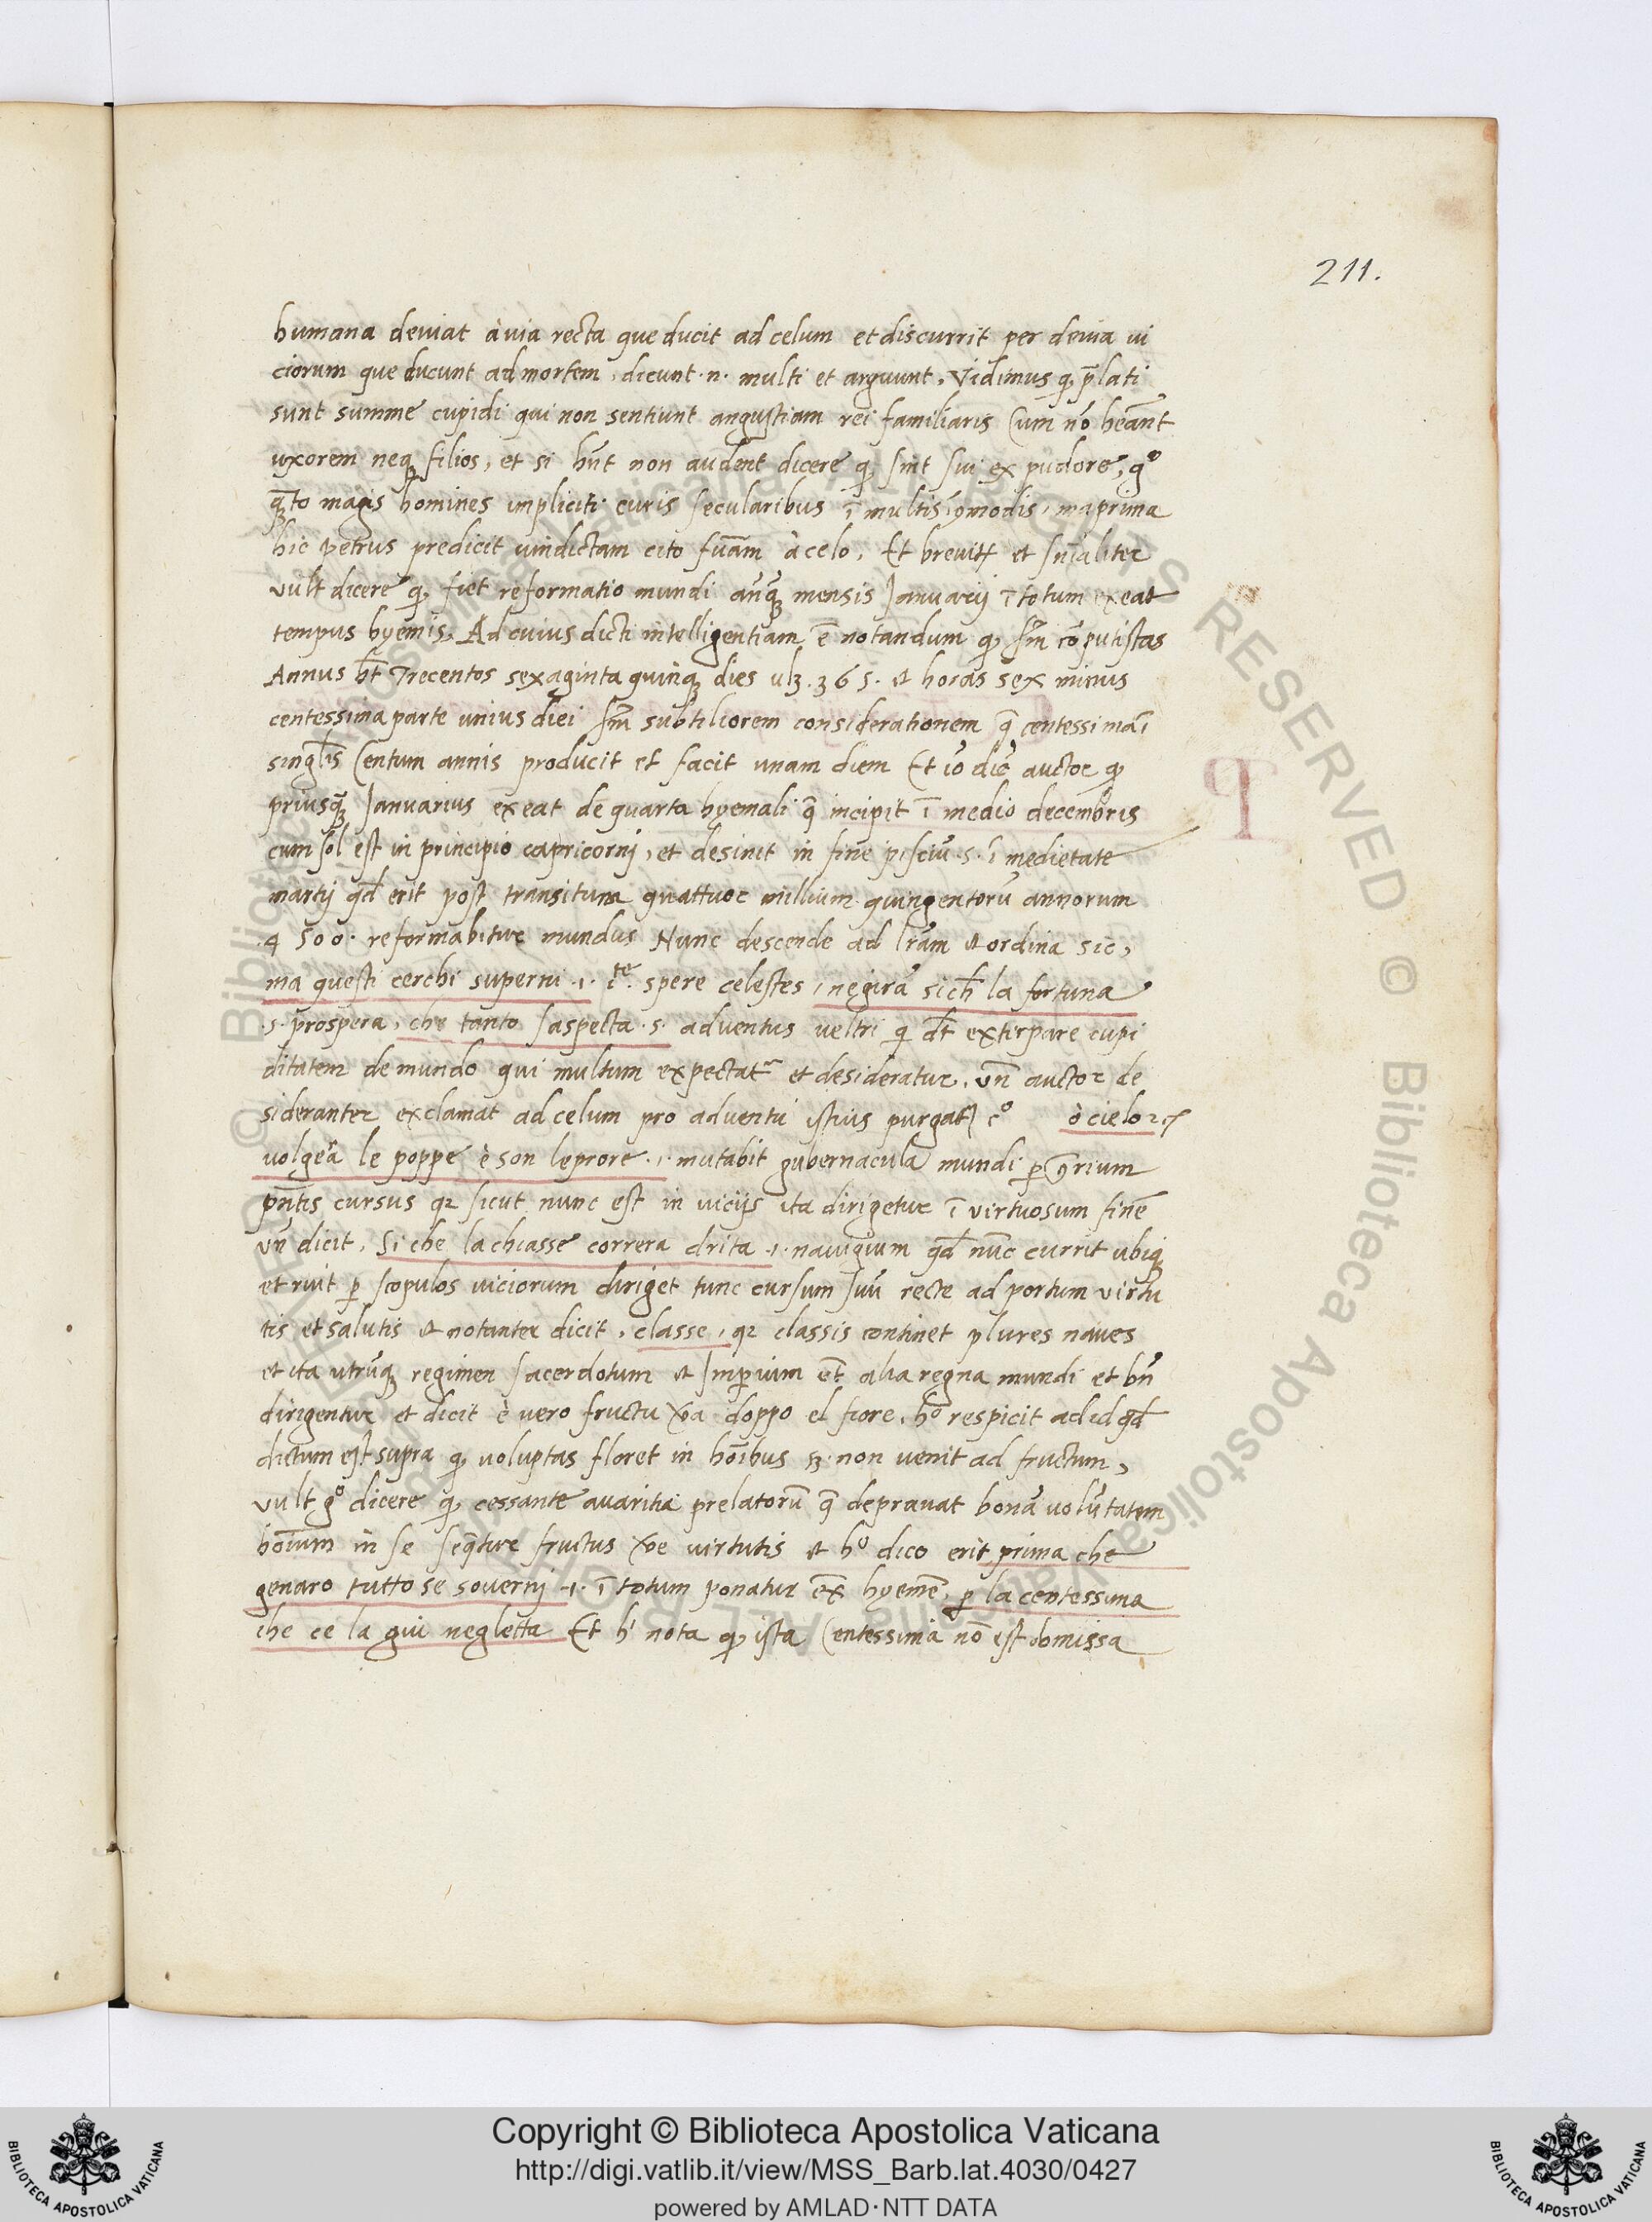 211.
humana deviat à via recta que ducit ad celum et discurrit per devia vi
ciorum que ducunt ad mortem, dicunt .n. multi et arguunt, Vidimus q, p̄lati
sunt summe cupidi qui non sentiunt angustiam rei familiaris Cum nō heānt
uxorem neq; filios, et si hn̄t non audent dicere q, sint sui ex pudore, g°
q̄to magis homines impliciti curis secularibus ī multis ꝯmodis, ma prima
hic petrus predicit vindictam cito fuām à celo, Et brevitr et sn̄ialiter
vult dicere q, fiet reformatio mundi anq̄; mensis Januarij ī totum exeat
tempus hyemis, Ad cuius dicti intelligentiam ē notandum q, sm̄ cōputistas
Annus ht̄ Trecentos sexaginta quinq; dies ulȝ .365. et horas sex minus
centessima parte unius diei sm̄ subtiliorem considerationem q̄ centessima ī
singl̄is Centum annis producit et facit unam diem Et iō dic̄ auctor q,
priusq̄; Januarius exeat de quarta hyemali q̄ incipit ī medio decembris
cum sol est in principio capricornj, et desinit in fine pisciū .s. ī medietate
martij qd̄ erit post transitum quattuor millium quingentorū annorum
.4500. reformabitur mundus Nunc descende ad lr̄am et ordina sic,
ma questi cerchi superni .i. iste. spere celestes, negirā sich̄ la fortuna
.s. prospera, che tanto saspecta .s. adventus veltri q dt̄ extirpare cupi
ditatem de mundo qui multum expectat~ et desideratur, vn̄ auctor de
sideranter exclamat ad celum pro adventu istius purgat
ò cielo
volgerā le poppe è son le prore .i. mutabit gubernacula mundi p ꝯ̄rium
pn̄tis cursus qr sicut nunc est in vicijs ita dirigetur ī virtuosum finē
vn̄ dicit, Si che la chiasse correra drita .i. navigium qd̄ nūc currit ubiq;
et ruit p scopulos viciorum diriget tunc cursum suū recte ad portum virtu
tis et salutis et notanter dicit, classe, qr classis continet plures naves
et ita utrūq; regimen sacerdotum et Imperium et̄ alia regna mundi et bn̄
dirigentur et dicit è vero fructu vra doppo el fiore, h° respicit ad id qd̄
dictum est supra q, voluptas floret in hōibus sȝ non venit ad fructum,
vult g° dicere q, cessante avaritia prelatorū q̄ depravat bonā volūtatem
hoīum in se seq̄tur fructus ve virtutis et h° dico erit prima che
genaro tutto se sovernj .i. ī totum ponatur ex̄ hyemē, p la centessima
che ce la giu negletta Et h' nota q, ista Centessima nō est obmissa
Copyright © Biblioteca Apostolica Vaticana
http://digi.vatlib.it/view/MSS_Barb.lat.4030/0427
powered by AMLAD·NTT DATA